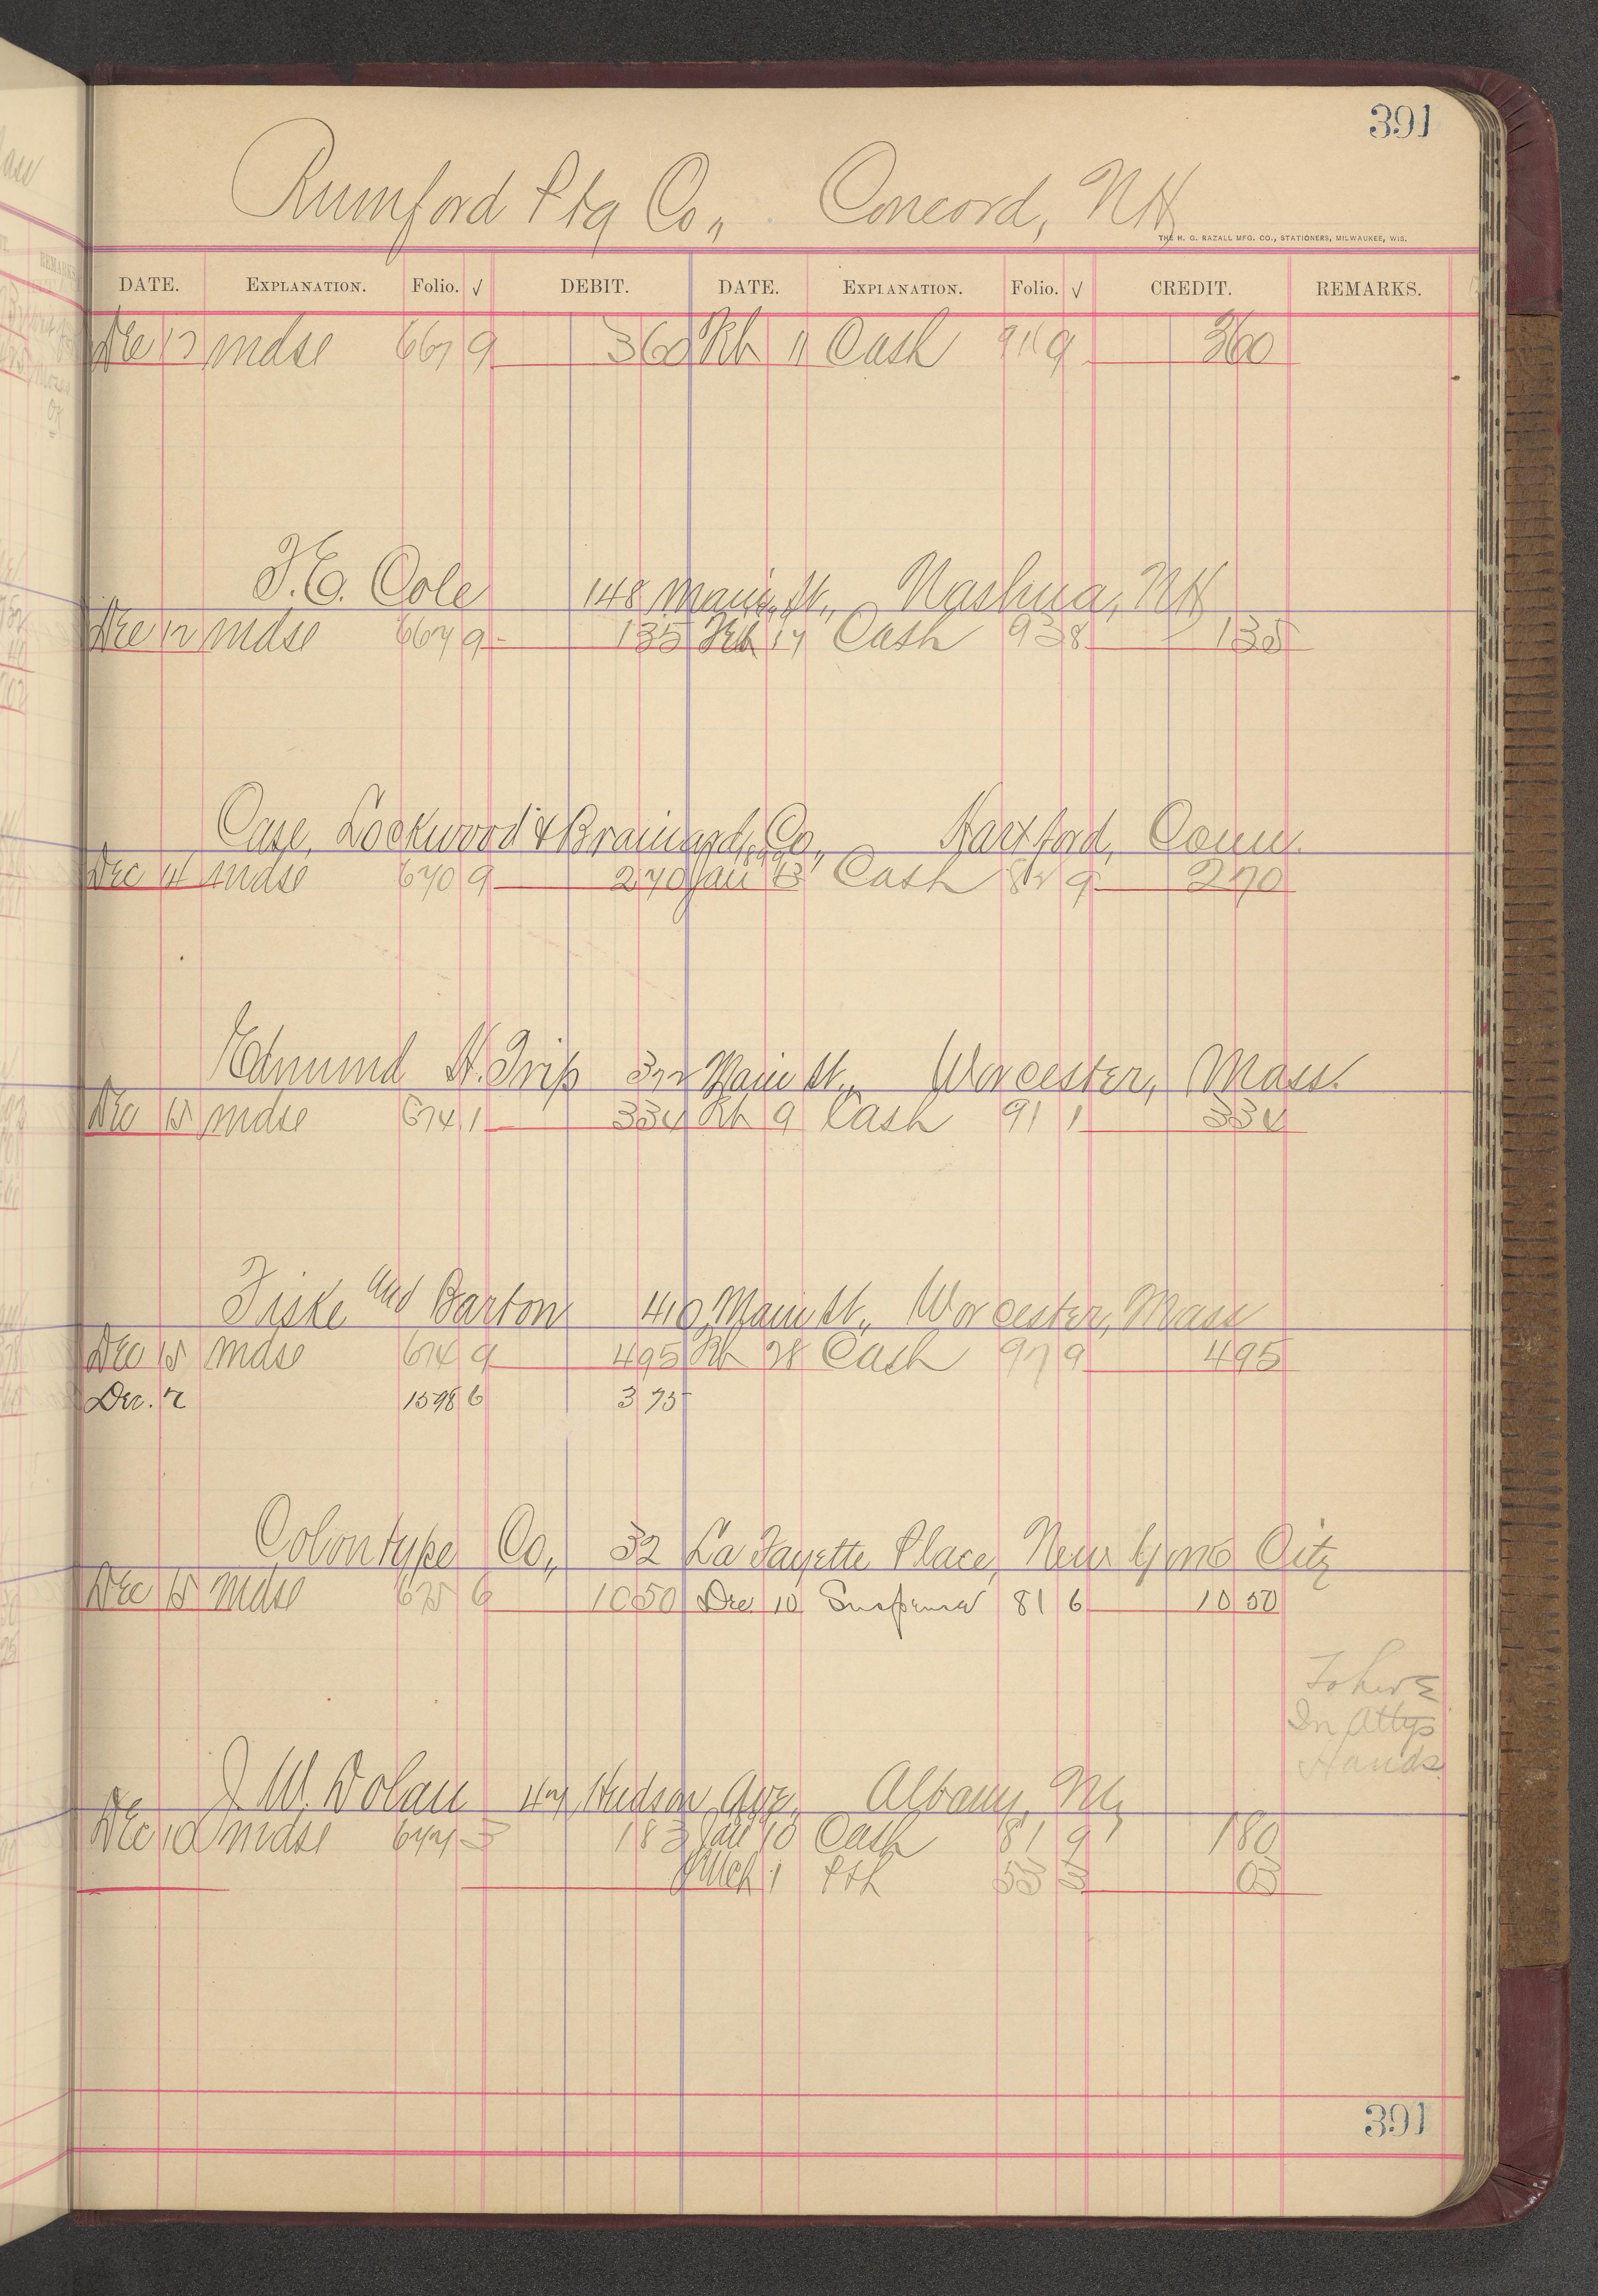 391
Rumford Ptg Co., Concord, NH
THE H. G. RAZALL MFG. CO., STATIONERS, MILWAUKEE, WIS.
DATE. EXPLANATION. Folio. √ DEBIT. DATE. EXPLANATION. Folio. √ CREDIT. REMARKS.
Dec 12 mdse 667 9 3 60 Feb 11 Cash 911 9 3 60
F. E. Cole 148 Main St., Nashua, NH
Dec 12 mdse 667 9 1 35 Feb 17 Cash 93 8 1 35
Case, Lockwood & Brainard Co., Hartford, Conn.
Dec 14 mdse 670 9 2 70 Jan 13 Cash 82 9 2 70
Edmund H. Trip 322 Main St., Worcester, Mass.
Dec 15 mdse 674 1 3 34 Feb 9 Cash 91 1 3 34
Fiske and Barton 410 Main St., Worcester, Mass
Dec 15 mdse 674 9 4 95 Feb 28 Cash 97 9 4 95
Dec. 2 1598 6 3 75
Colontype Co., 32 La Fayette Place, New York City
Dec 15 mdse 675 6 10 50 Dec 10 Suspense 81 6 10 50
In Attys
Hands
J. W. Dolan 47 Hudson Ave., Albany, NY
Dec 10 mdse 647 3 1 83 Jan 10 Cash 81 9 1 80
Mch 1 03
391